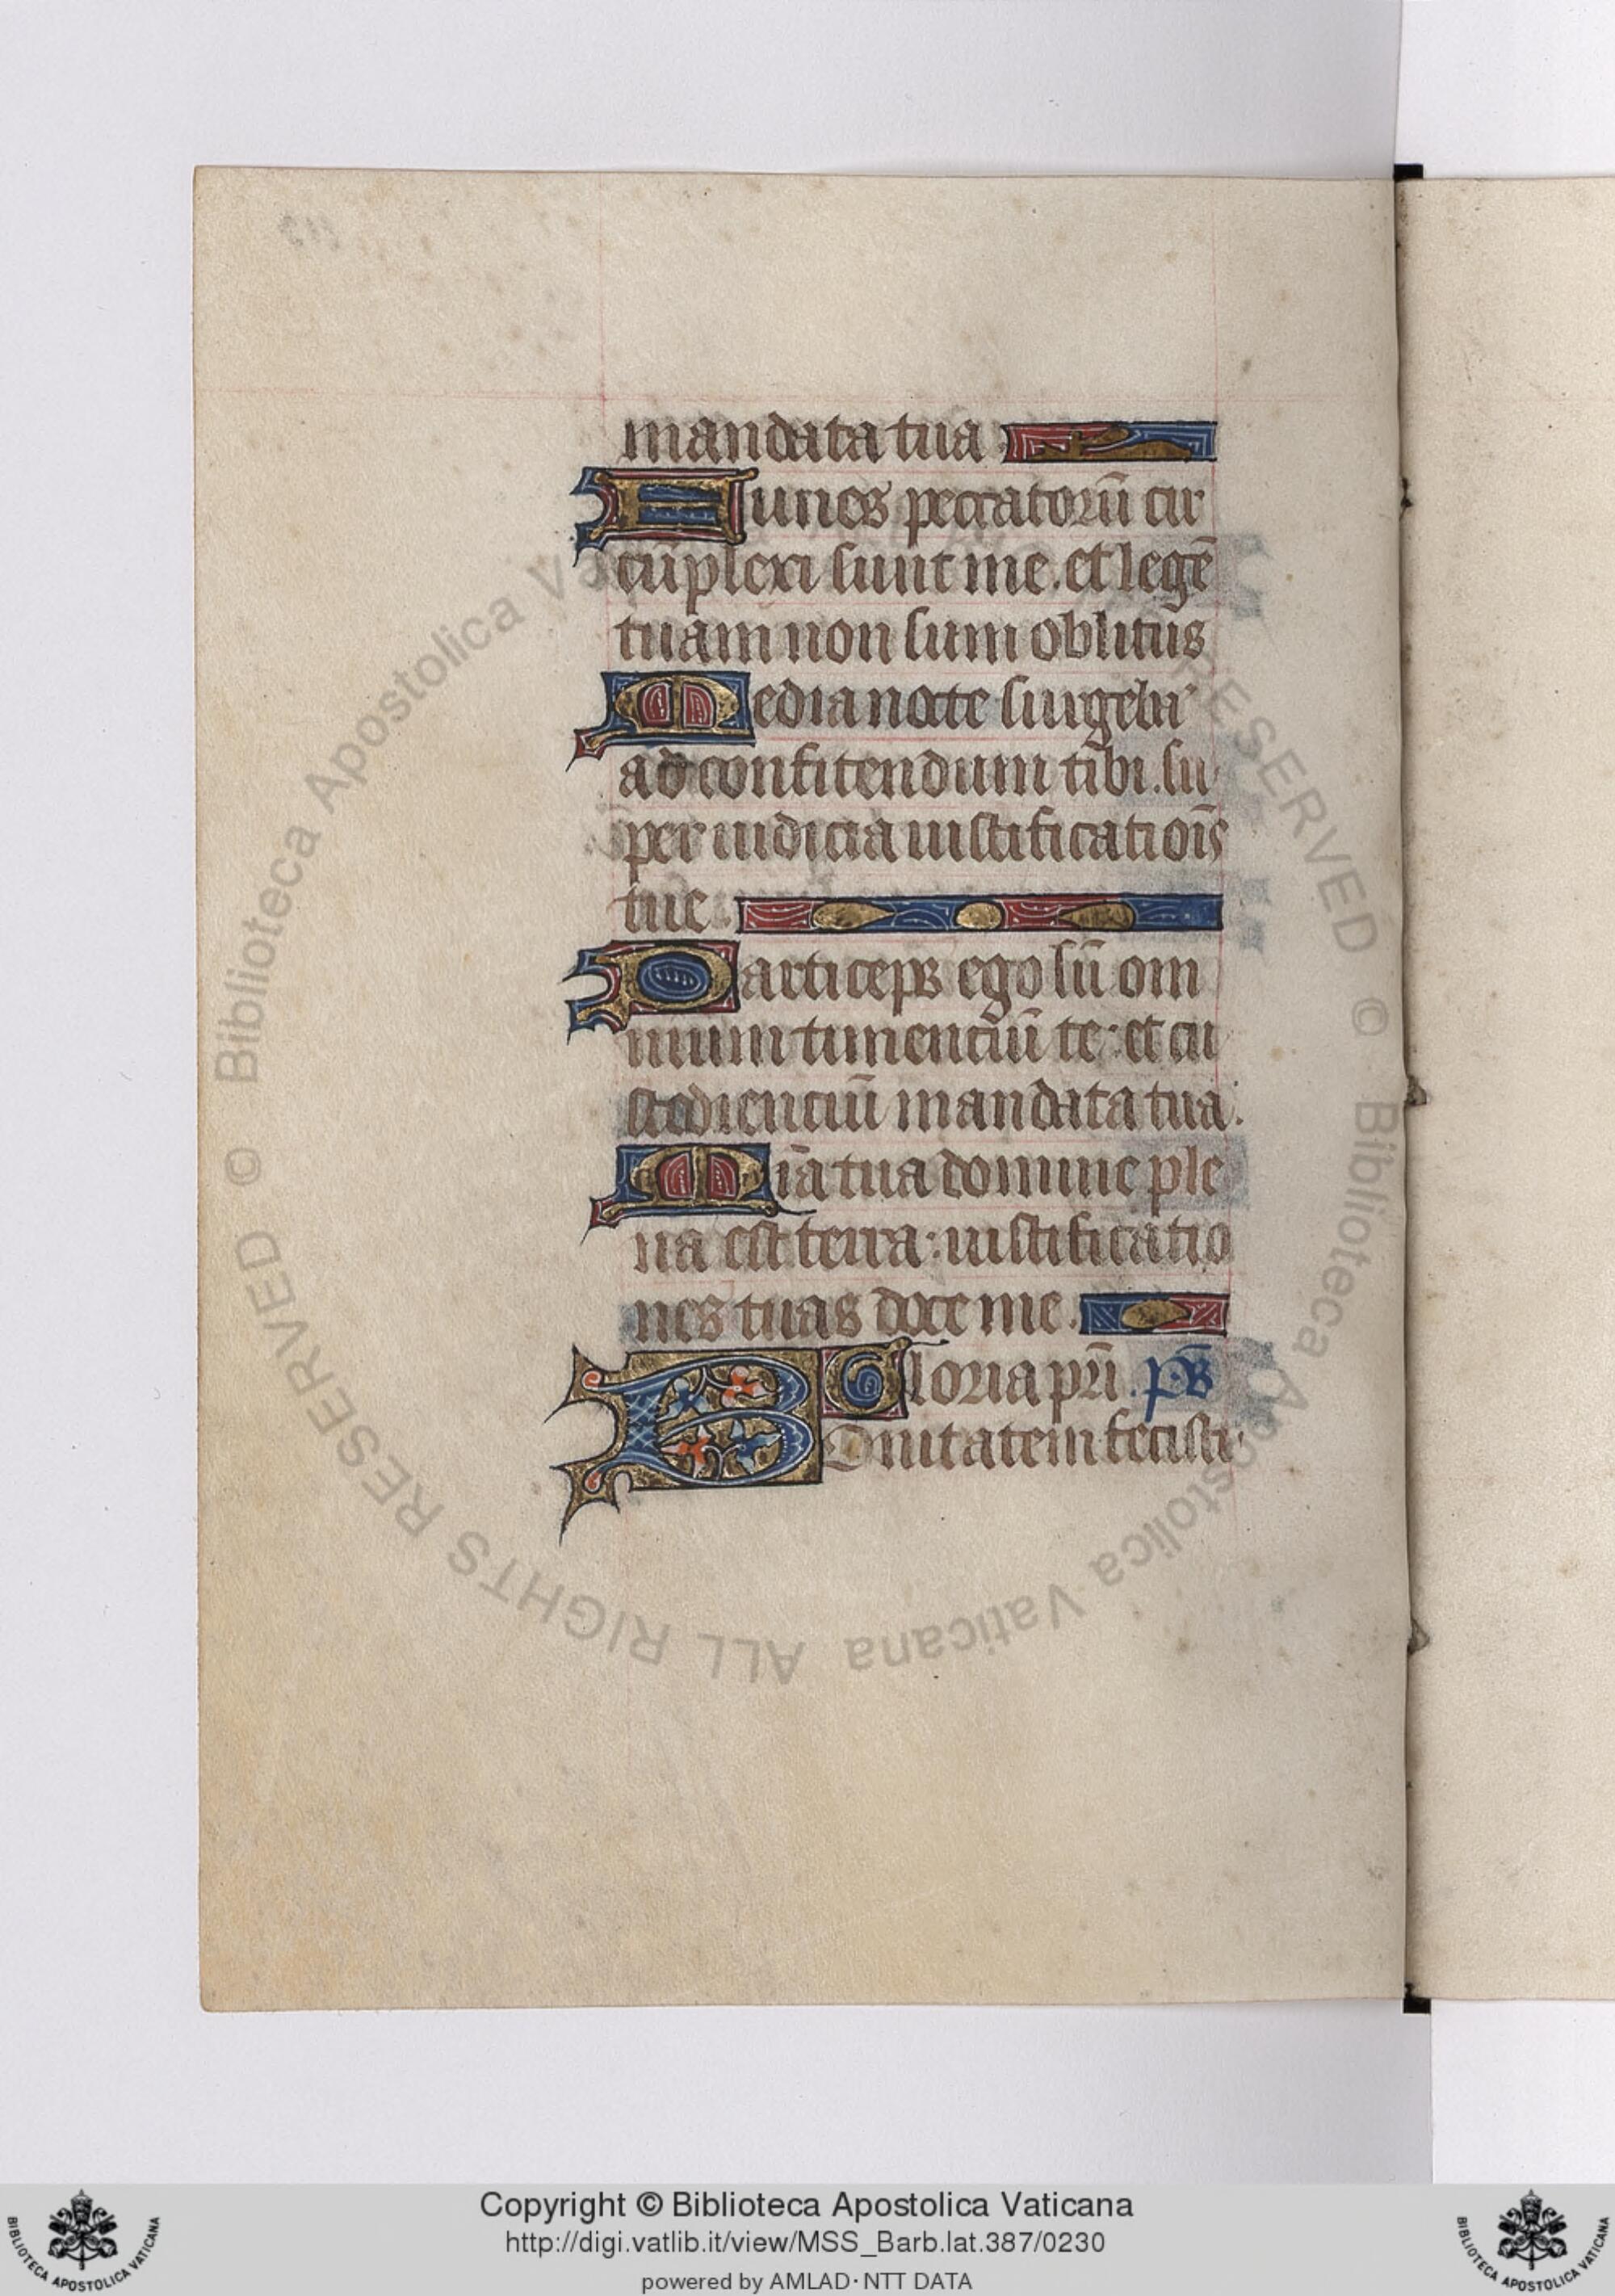 mandata tua
Funes peccatorū cir
cūplexi sunt me. et legē
tuam non sum oblitus
Media nocte surgebā
ad confitendum tibi. su
per iudicia iustificatiōis
tue.
Particeps ego sū om
nium timenciū te: et cu
stodienciū mandata tua.
Mīa tua domine ple
na est terra: iustificatio
nes tuas doce me.
Gloria pr̄i. ps
Bonitatem fecisti
© Biblioteca Apostolica Vaticana ALL RIGHTS RESERVED © Biblioteca Apostolica Vaticana ALL RIGHTS RESERVED
Copyright © Biblioteca Apostolica Vaticana
http://digi.vatlib.it/view/MSS_Barb.lat.387/0230
powered by AMLAD·NTT DATA
BIBLIOTECA APOSTOLICA VATICANA
BIBLIOTECA APOSTOLICA VATICANA